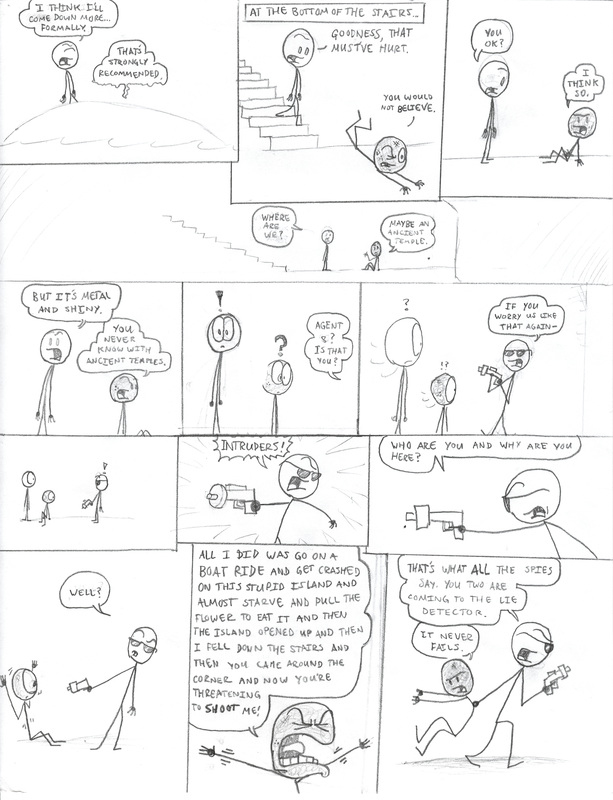 I THINK I'LL
COME DOWN MORE...
FORMALLY.
THAT'S
STRONGLY
RECOMMENDED.
AT THE BOTTOM OF THE STAIRS...
GOODNESS, THAT
MUST'VE HURT.
YOU WOULD
NOT BELIEVE.
YOU
OK?
I
THINK
SO.
WHERE
ARE
WE?
MAYBE AN
ANCIENT
TEMPLE.
BUT IT'S METAL
AND SHINY.
YOU
NEVER
KNOW WITH
ANCIENT TEMPLES.
!
?
AGENT
8?
IS THAT
YOU?
?
!?
IF YOU
WORRY US LIKE
THAT AGAIN-
!
INTRUDERS!
WHO ARE YOU AND WHY ARE YOU
HERE?
WELL?
ALL I DID WAS GO ON A
BOAT RIDE AND GET CRASHED
ON THIS STUPID ISLAND AND
ALMOST STARVE AND PULL THE
FLOWER TO EAT IT AND THEN
THE ISLAND OPENED UP AND THEN
I FELL DOWN THE STAIRS AND
THEN YOU CAME AROUND THE
CORNER AND NOW YOU'RE
THREATENING
TO SHOOT ME!
THAT'S WHAT ALL THE SPIES
SAY. YOU TWO ARE
COMING TO THE LIE
DETECTOR.
IT NEVER
FAILS.